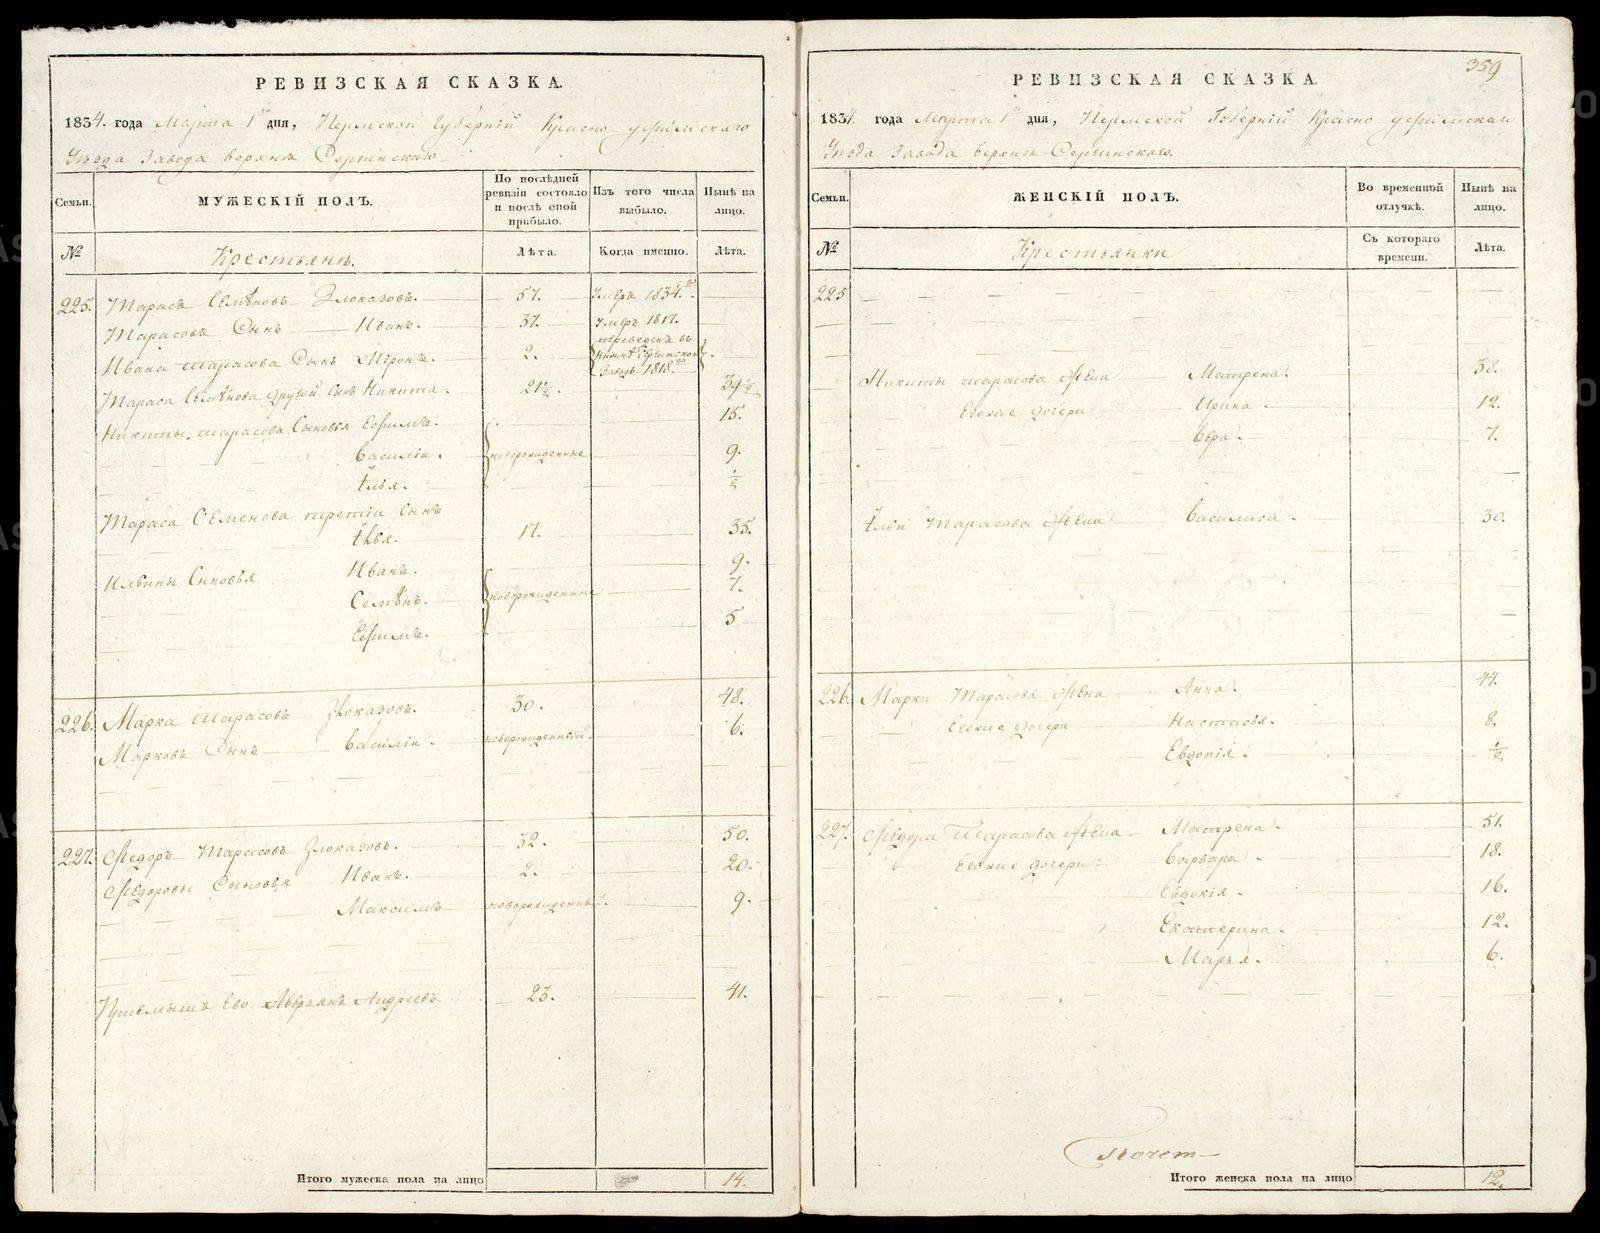 РЕВИЗСКАЯ СКАЗКА.
1834. года Марта 1го дня, Пермской губерніи Красно уфимскаго
Уезда Завода верхне Сергинскаго
Семьи.
МУЖЕСКІЙ ПОЛЪ.
По послѣдней ревизіи состояло и послѣ оной прибыло.
Изъ того числа выбыло.
Нынѣ на лицо.
№
Крестьяне.
Лѣта.
Когда именно.
Лѣта.
225. Тарасъ Семѣновъ Злоказовъ. 57. Умеръ 1834.го
Тарасовъ Сынъ Иванъ. 37. умеръ 1817.
Ивана Тарасова Сынъ Миронъ. 2. переведенъ въ Нижнѣ Сергинской Заводъ 1818.го
Тараса Семѣнова другой сынъ Никита. 21½. 39½
Никиты Тарасова Сыновья Ефимъ. 15.
Василіи. новорожденные 9.
Илья. ½
Тараса Семенова третіи Сынъ
Илья. 17. 35.
Ильины Сыновья Иванъ. 9.
Семѣнъ. новорожденные 7.
Ефимъ. 5
226. Марка Тарасовъ Злоказовъ. 30. 48.
Марковъ Сынъ Василіи. новорожденный. 6.
227. Федоръ Тарасовъ Злоказовъ. 32. 50.
Федоровы Сыновья Иванъ. 2. 20.
Максимъ новорожденный. 9.
Приемышъ Ево Аверьянъ Андреевъ 23. 41.
Итого мужеска пола на лицо 14.
359
РЕВИЗСКАЯ СКАЗКА.
1834. года Марта 1го дня, Пермской Губерніи Красно уфимскаго
Уезда Завода верхне Сергинскаго.
Семьи.
ЖЕНСКІЙ ПОЛЪ.
Во временной отлучкѣ.
Нынѣ на лицо.
№
Крестьянки
Съ котораго времени.
Лѣта.
225
Никиты Тарасова Жена Матрена. 38.
Евоные дочери Ирина. 12.
Вера. 7.
Ильи Тарасова Жена Василиса. 30.
226. Марки Тарасова Жена Анна. 44.
Евоные дочери Настасья. 8.
Евдокія. ½
227. Федора Тарасова Жена Матрена. 51.
Евоные дочери: Варвара 18.
Евдокія. 16.
Екатерина. 12.
Марья. 6.
Итого женска пола на лицо 12.